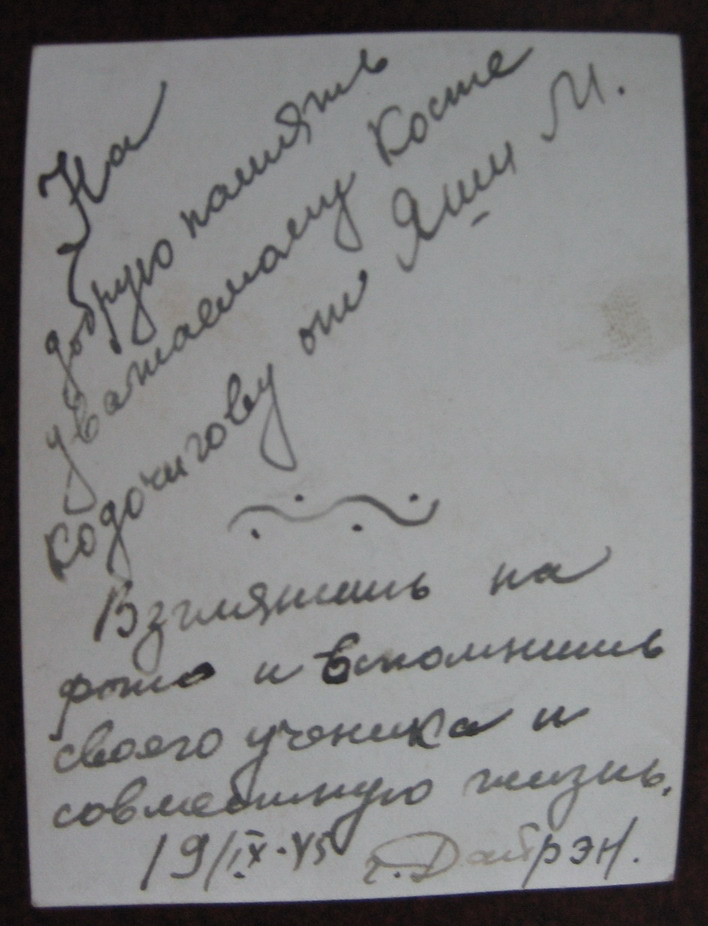 На
добрую память
уважаемому Косте
Кодочигову от Яши М.
Взглянешь на
фото и вспомнишь
своего ученика и
совместную жизнь.
19/IX-45 г. Дайрэн.